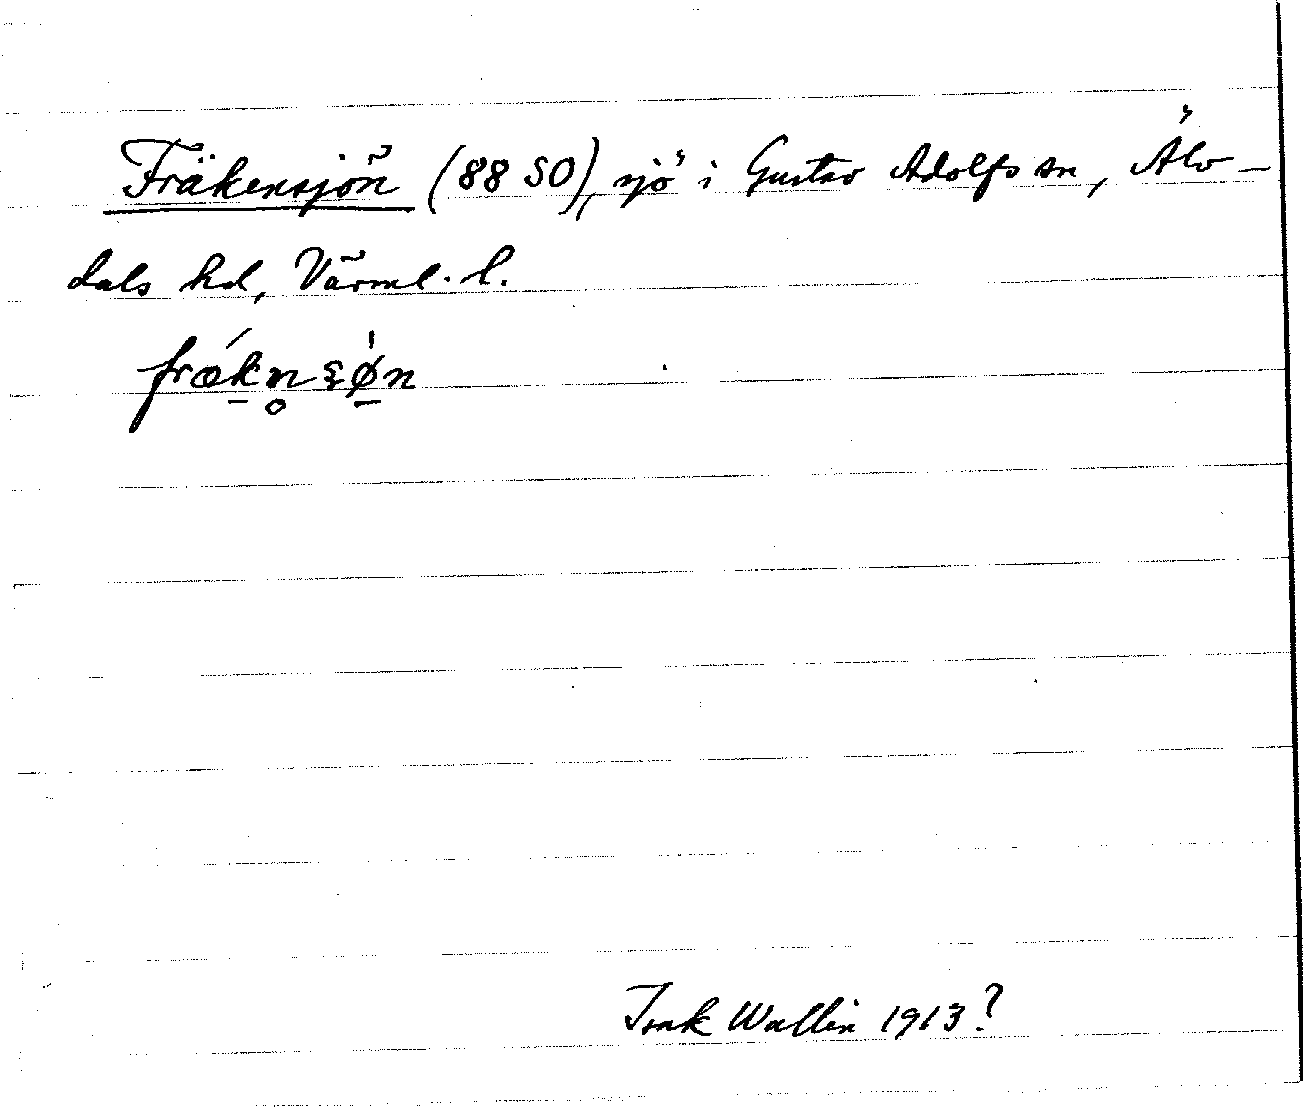 Fräkensjön (88 SO), sjö i Gustav Adolfs sn, Älv-
dals hd, Värml. l.
frǽkn̥ʂø̍n
Isak Wallin 1913?